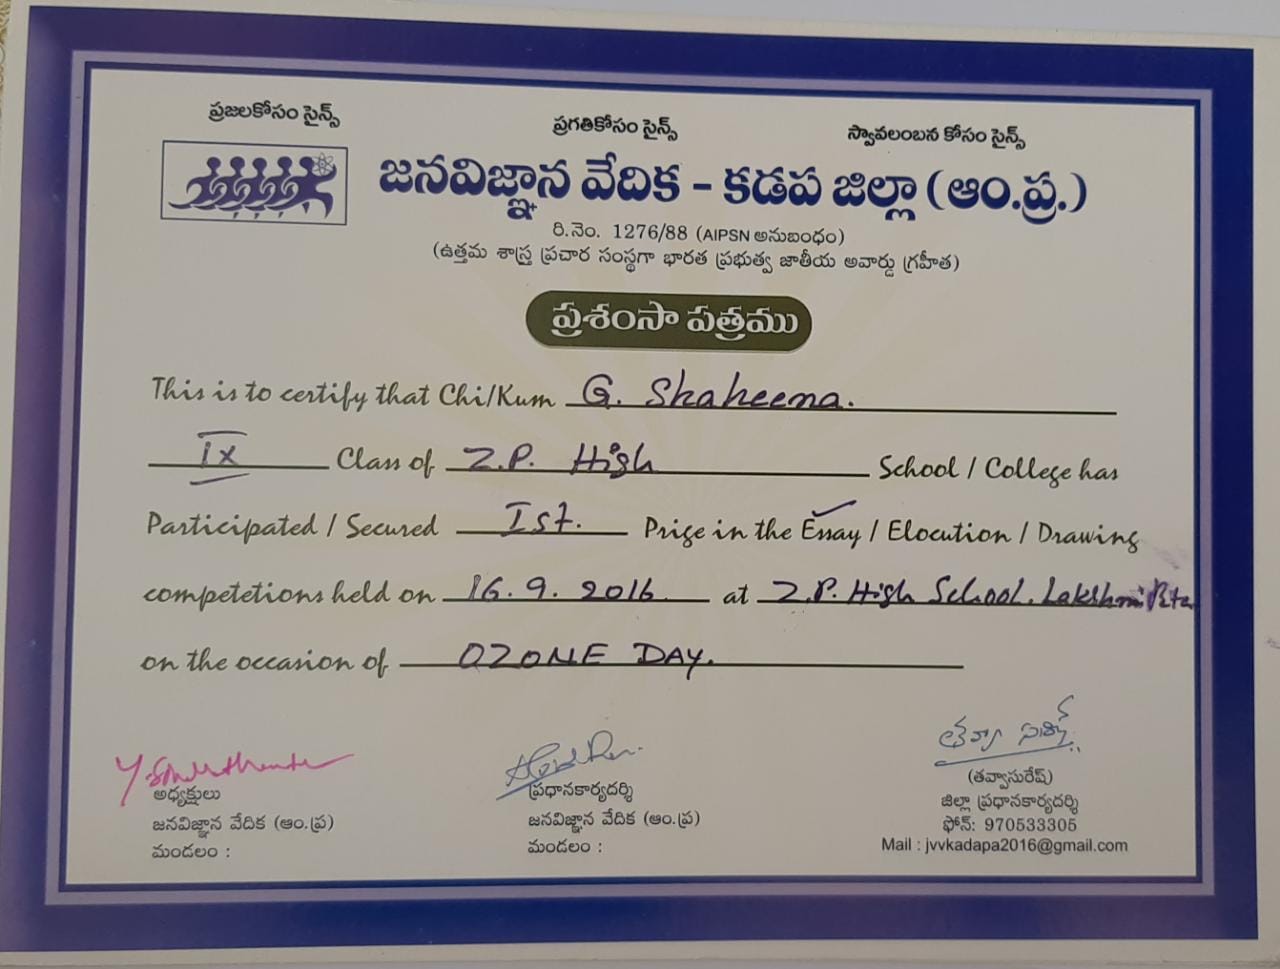 ప్రజలకోసం సైన్స్ ప్రగతికోసం సైన్స్ స్వావలంబన కోసం సైన్స్
జనవిజ్ఞాన వేదిక - కడప జిల్లా (ఆం.ప్ర.)
రి.నెం. 1276/88 (AIPSN అనుబంధం)
(ఉత్తమ శాస్త్ర ప్రచార సంస్థగా భారత ప్రభుత్వ జాతీయ అవార్డు గ్రహీత)
ప్రశంసా పత్రము
This is to certify that Chi/Kum G. Shaheena.
IX Class of Z.P. High School / College has
Participated / Secured Ist. Prize in the Essay / Elocution / Drawing
competetions held on 16.9.2016 at Z.P. High School. Lakshmi
on the occasion of OZONE DAY.
అధ్యక్షులు
జనవిజ్ఞాన వేదిక (ఆం.ప్ర)
మండలం :
ప్రధానకార్యదర్శి
జనవిజ్ఞాన వేదిక (ఆం.ప్ర)
మండలం :
(తవ్వాసురేష్)
జిల్లా ప్రధానకార్యదర్శి
ఫోన్: 970533305
Mail : jvvkadapa2016@gmail.com